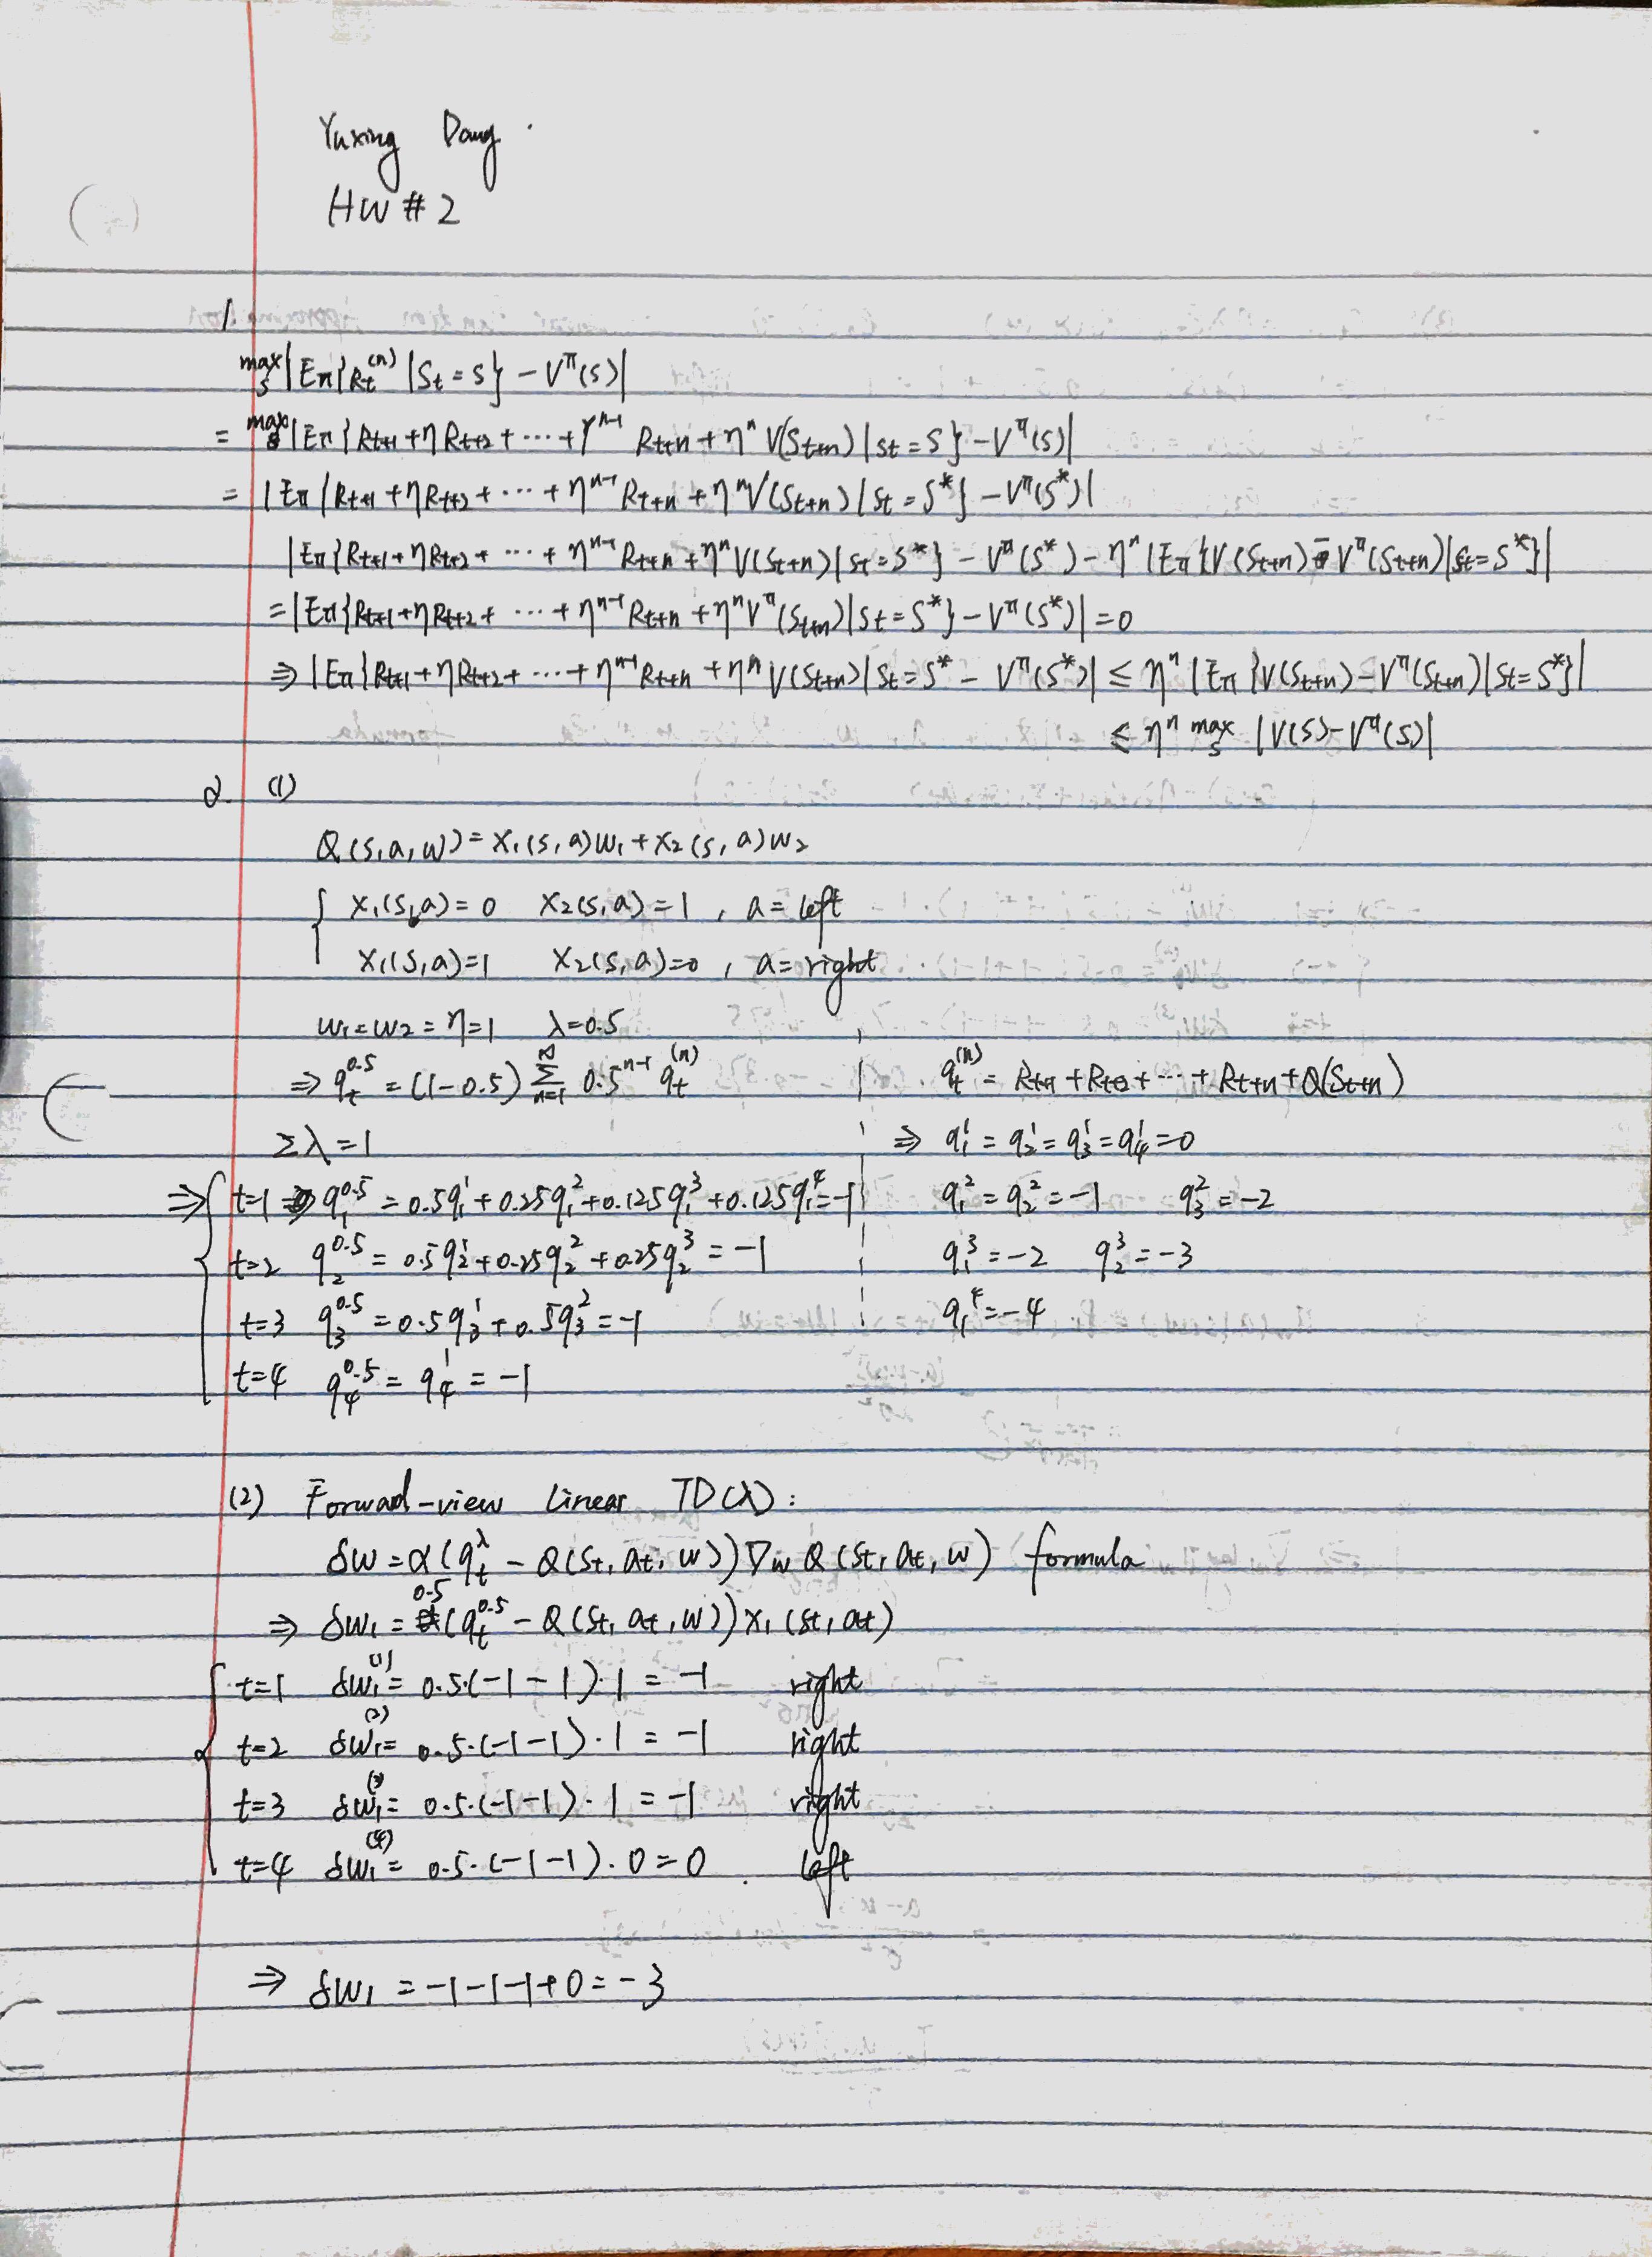 Yuxing Dang
HW # 2
1.
max_s |Eπ{Rt^(n) | St = s} - V^π(s)|
= max_s |Eπ{Rt+1 + ηRt+2 + ··· + γ^n-1 Rt+n + η^n V(St+n) | St = S} - V^π(s)|
= |Eπ{Rt+1 + ηRt+2 + ··· + η^n-1 Rt+n + η^n V(St+n) | St = S*} - V^π(S*)|
|Eπ{Rt+1 + ηRt+2 + ··· + η^n-1 Rt+n + η^n V(St+n) | St = S*} - V^π(S*) - η^n |Eπ{V(St+n) - V^π(St+n) | St = S*}|
= |Eπ{Rt+1 + ηRt+2 + ··· + η^n-1 Rt+n + η^n V^π(St+n) | St = S*} - V^π(S*)| = 0
⇒ |Eπ{Rt+1 + ηRt+2 + ··· + η^n-1 Rt+n + η^n V(St+n) | St = S* - V^π(S*)| ≤ η^n |Eπ{V(St+n) - V^π(St+n) | St = S*}|
≤ η^n max_s |V(S) - V^π(S)|
2. (1)
Q(s,a,w) = x1(s,a)w1 + x2(s,a)w2
x1(s,a) = 0 x2(s,a) = 1 , a = left
x1(s,a) = 1 x2(s,a) = 0 , a = right
w1 = w2 = η = 1 λ = 0.5
⇒ qt^0.5 = (1-0.5) Σ_{n=1}^∞ 0.5^n-1 qt^(n) qt^(n) = Rt+1 + Rt+2 + ··· + Rt+n + Q(St+n)
Σλ = 1 ⇒ q1^1 = q2^1 = q3^1 = q4^1 = 0
⇒ t=1 ⇒ q1^0.5 = 0.5q1^1 + 0.25q1^2 + 0.125q1^3 + 0.125q1^4 = -1 q1^2 = q2^2 = -1 q3^2 = -2
t=2 q2^0.5 = 0.5q2^1 + 0.25q2^2 + 0.25q2^3 = -1 q1^3 = -2 q2^3 = -3
t=3 q3^0.5 = 0.5q3^1 + 0.5q3^2 = -1 q1^4 = -4
t=4 q4^0.5 = q4^1 = -1
(2) Forward-view Linear TD(λ) :
δw = α(qt^λ - Q(St, at, w))∇w Q(St, at, w) formula
⇒ δw1 = 0.5 (qt^0.5 - Q(St, at, w)) x1(St, at)
t=1 δw1^(1) = 0.5·(-1-1)·1 = -1 right
t=2 δw1^(2) = 0.5·(-1-1)·1 = -1 right
t=3 δw1^(3) = 0.5·(-1-1)·1 = -1 right
t=4 δw1^(4) = 0.5·(-1-1)·0 = 0 left
⇒ δw1 = -1-1-1+0 = -3